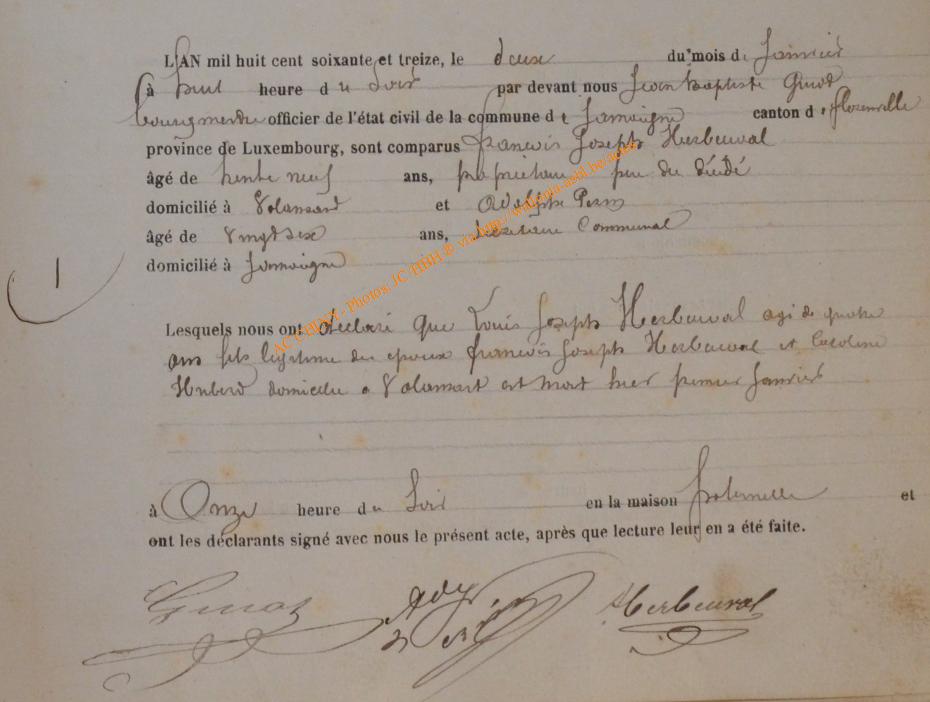 L'AN mil huit cent soixante et treize, le deux du mois de Janvier
à huit heure du Soir par devant nous Jean Baptiste
bourgmestre officier de l'état civil de la commune de Jamoigne canton de florenville
province de Luxembourg, sont comparus francois Joseph Herbeuval
âgé de trente neuf ans, propriétaire père du décédé
domicilié à Valansart et Adolphe
âgé de Vingt six ans, Secrétaire Communal
domicilié à Jamoigne
1
Lesquels nous ont déclaré que Louis Joseph Herbeuval agé de quatre
ans fils légitime des epoux francois Joseph Herbeuval et Caroline
domicilie a Valansart est mort hier premier Janvier
à Onze heure du Soir en la maison paternelle et
ont les déclarants signé avec nous le présent acte, après que lecture leur en a été faite.
Herbeuval
ACT-HDNX - Photos: JC HBH © via http://